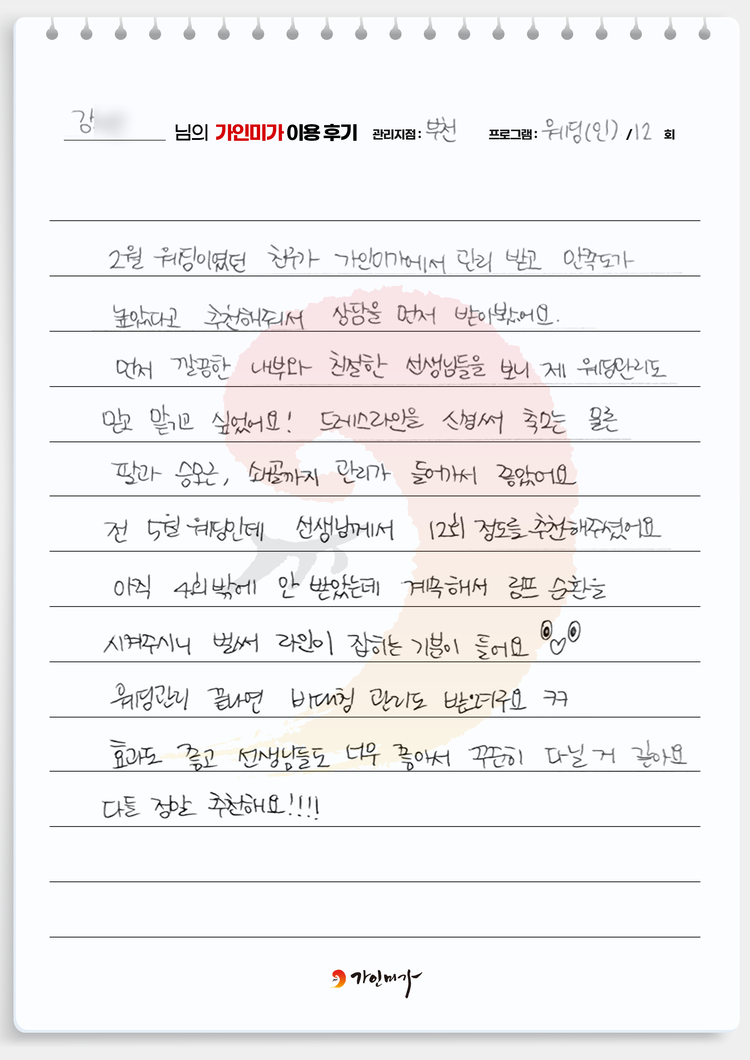 강 님의 가인미가 이용 후기 관리지점 : 부천 프로그램 : 웨딩(인) / 12 회
2월 웨딩이였던 친구가 가인미가에서 관리 받고 만족도가
높았다고 추천해줘서 상담을 먼저 받아봤어요.
먼저 깔끔한 내부와 친절한 선생님들을 보니 제 웨딩관리도
믿고 맡기고 싶었어요! 드레스라인을 신경써 축모는 물론
팔과 승모근, 쇄골까지 관리가 들어가서 좋았어요
전 5월 웨딩인데 선생님께서 12회 정도를 추천해주셨어요
아직 4회밖에 안 받았는데 계속해서 림프 순환을
시켜주시니 벌써 라인이 잡히는 기분이 들어요
웨딩관리 끝나면 비대칭 관리도 받으려구요 ㅋㅋ
효과도 좋고 선생님들도 너무 좋아서 꾸준히 다닐 거 같아요
다들 정말 추천해요!!!!
가인미가